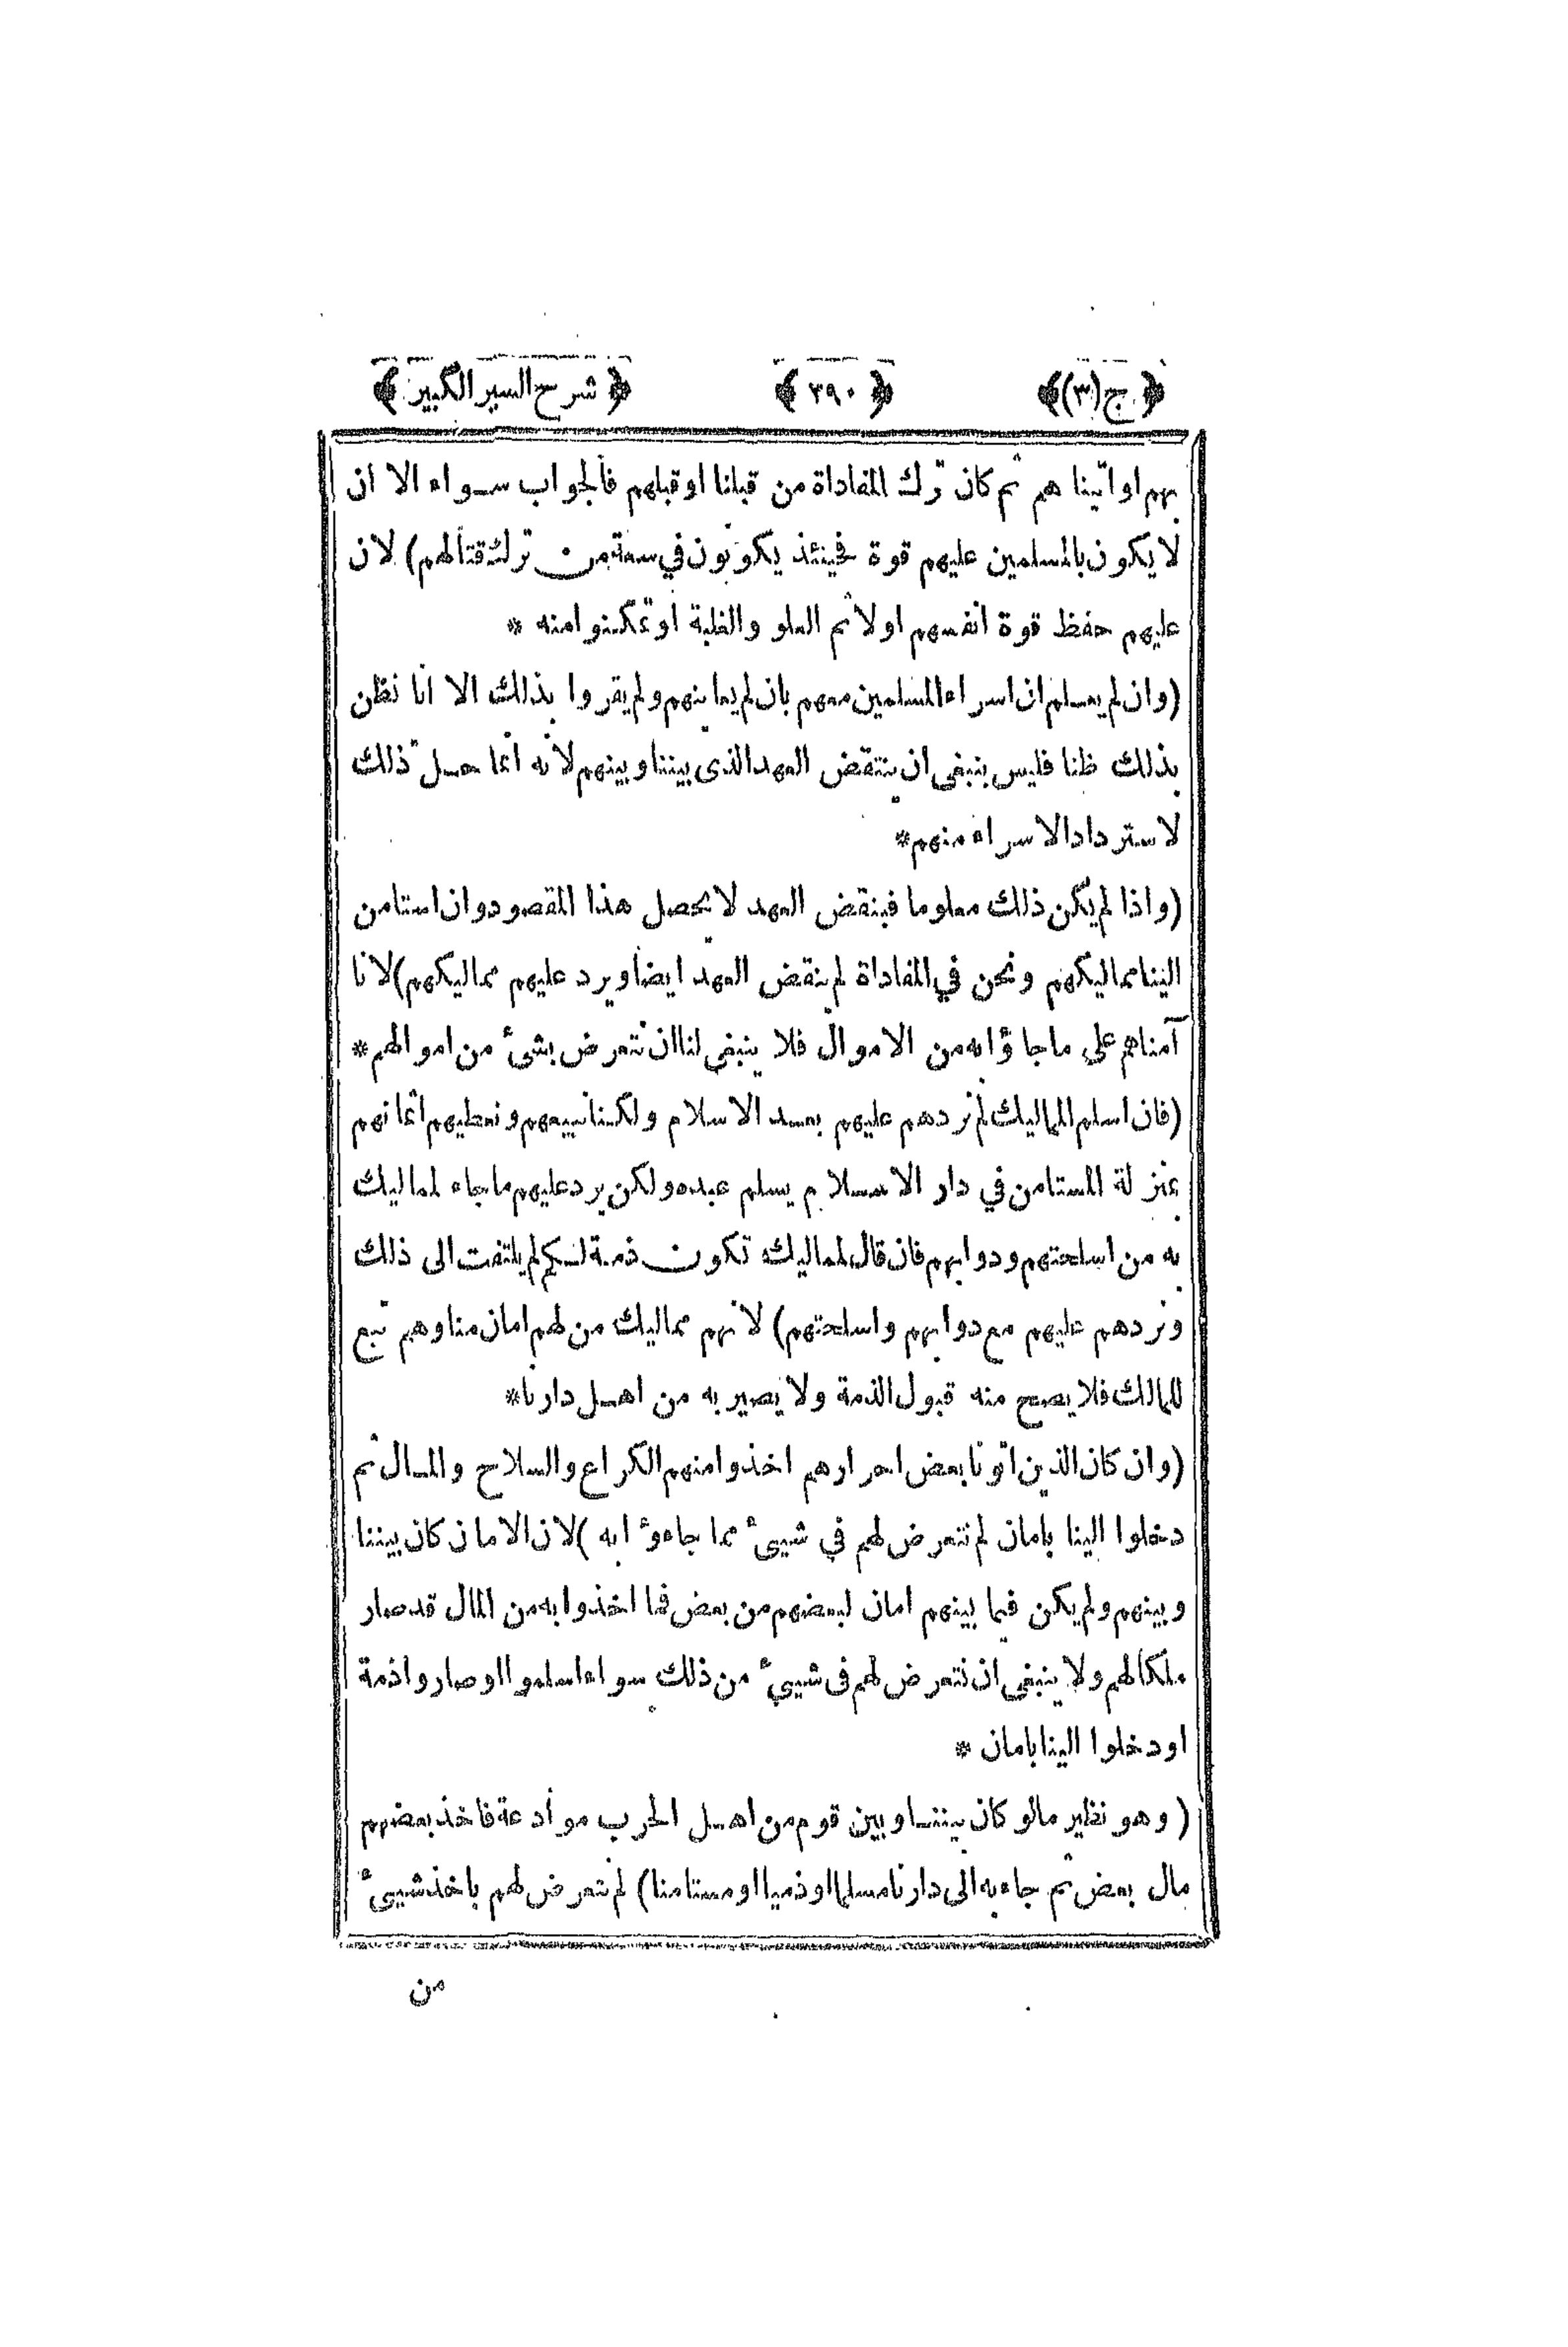 ﴿ ج (٣) ﴾ ﴿ ٣٩٠ ﴾ ﴿ شرح السير الكبير ﴾
بهم او اتينا هم ثم كان ترك المفاداة من قبلنا او قبلهم فالجواب سواء الا ان
لا يكون بالمسلمين عليهم قوة فحينئذ يكونون في سعة من ترك قتالهم) لان
عليهم حفظ قوة انفسهم اولا ثم العلو والغلبة او تمكنوا منه *
(وان لم يعلم ان اسراء المسلمين معهم بان لم يعاينهم ولم يقروا بذلك الا انا نظن
بذلك ظنا فليس ينبغي ان ينتقض العهد الذى بيننا وبينهم لانه انما حمل ذلك
لاسترداد الاسراء منهم *
(واذا لم يكن ذلك معلوما فبنقض العهد لا يحصل هذا المقصود وان استامن
الينا مماليكهم ونحن في المفاداة لم ينقض العهد ايضا ويرد عليهم مماليكهم) لانا
آمناهم على ما جاؤا به من الاموال فلا ينبغي لنا ان نتعرض بشئ من اموالهم *
(فان اسلم المماليك لم نردهم عليهم بعد الاسلام ولكنا نبيعهم ونعطيهم اثمانهم
بمنزلة المستامن في دار الاسلام يسلم عبده ولكن يرد عليهم ما جاء المماليك
به من اسلحتهم ودوابهم فان قال المماليك نكون ذمة لكم لم يلتفت الى ذلك
ونردهم عليهم مع دوابهم واسلحتهم) لانهم مماليك من لهم امان منا وهم تبع
للمالك فلا يصح منه قبول الذمة ولا يصير به من اهل دارنا *
(وان كان الذين اتونا بعض احرارهم اخذوا منهم الكراع والسلاح والمال ثم
دخلوا الينا بامان لم نتعرض لهم في شيئ مما جاءوا به) لان الامان كان بيننا
وبينهم ولم يكن فيما بينهم امان لبعضهم من بعض فما اخذوا به من المال قد صار
ملكا لهم ولا ينبغي ان نتعرض لهم فى شيئ من ذلك سواء اسلموا او صاروا ذمة
او دخلوا الينا بامان *
( وهو نظير مالو كان بيننا وبين قوم من اهل الحرب موادعة فاخذ بعضهم
مال بعض ثم جاء به الى دارنا مسلما او ذميا او مستامنا) لم نتعرض لهم باخذ شيئ
من